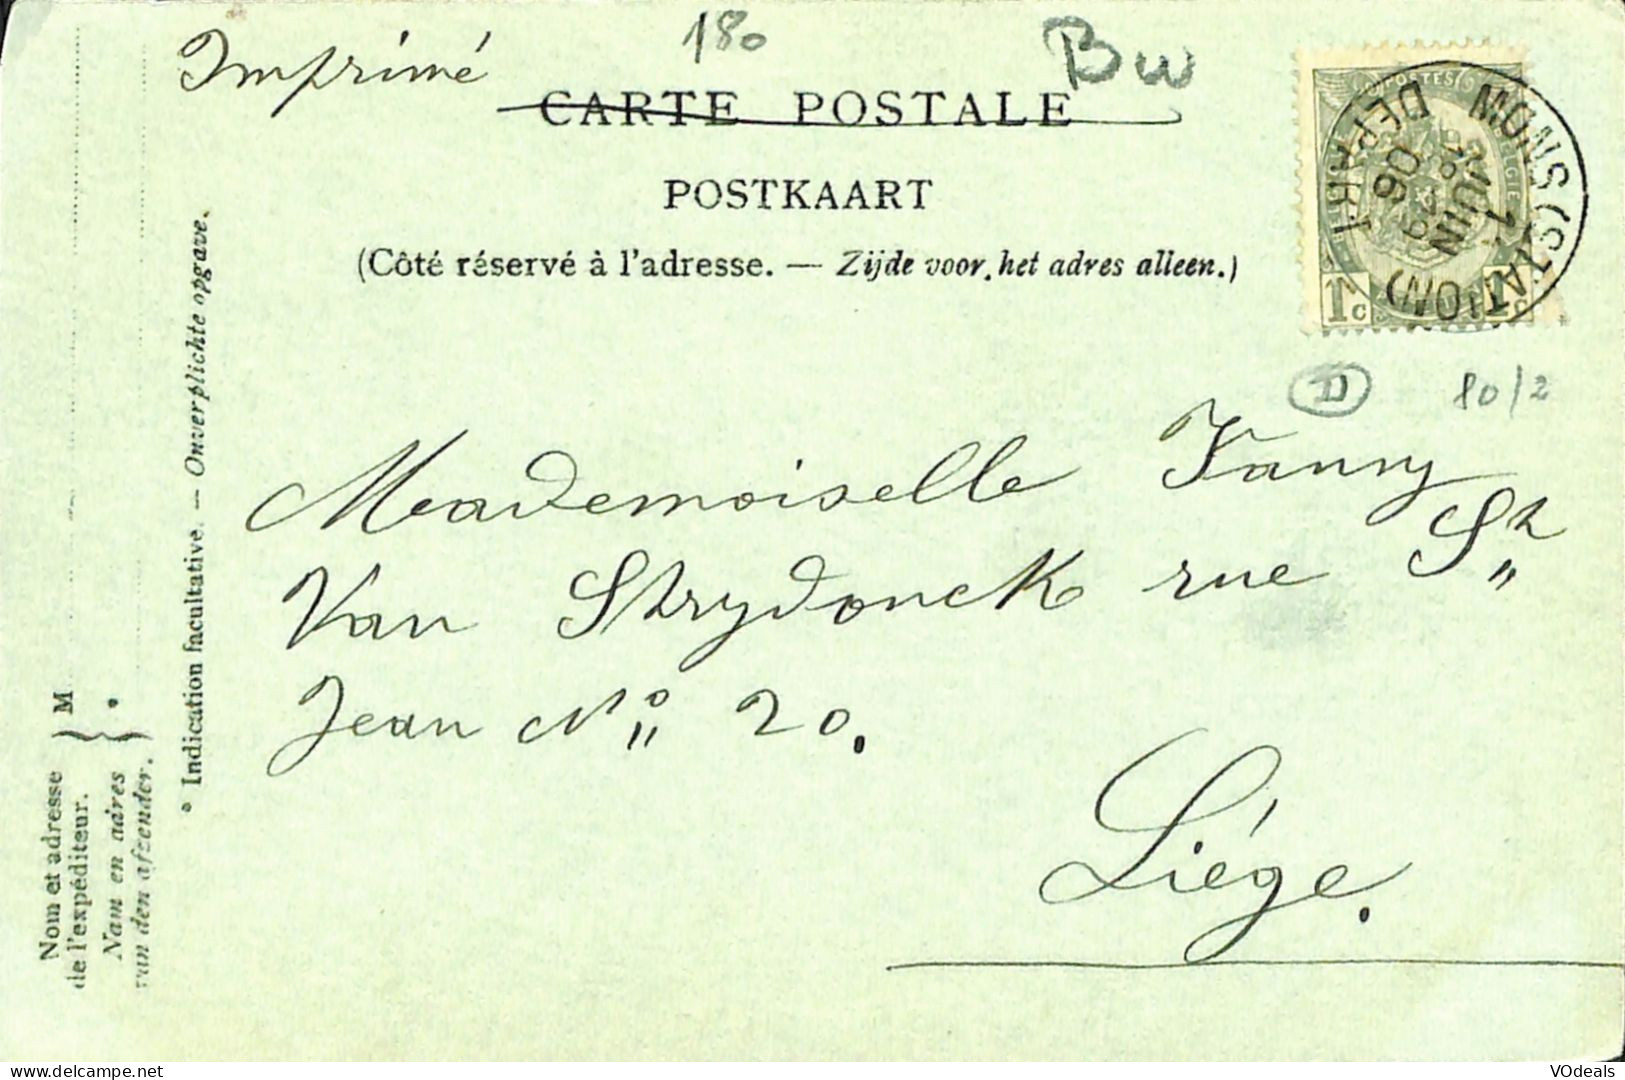 Imprimé
180
Bw
CARTE POSTALE
POSTKAART
(Côté réservé à l'adresse. — Zijde voor het adres alleen.)
MONS (STATION)
DEPART
JUIN
06
POSTES
1c 1c
D
80/2
Mademoiselle Fanny
Van Strydonck rue St
Jean No 20.
Liége.
Nom et adresse
de l'expéditeur.
Nam en adres
van den afzender.
M
* Indication facultative. — Onverplichte opgave.
VOdeals